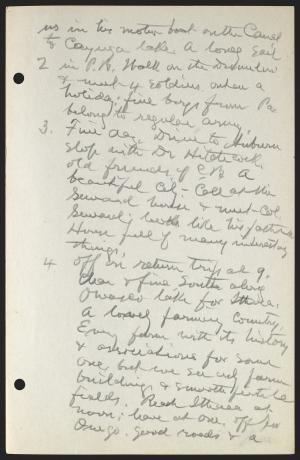 us in his motor boat on the Canal
to Cayuga lake. A lovely sail
2 in P.M. Walk on the
& meet 4 soldiers when a
holiday; fine boys from Pa
belong to regular army.
3. Fine day. Drive to Auburn
stop with Dr Hitchcock
old friends of C.B. A
beautiful Call at the
Seward house & meet Col.
Seward; looks like his father
House full of many interesting
things.
4 off on return trip at 9.
Clear & fine South along
Owasco lake for Ithaca.
A lovely farming Country.
Every farm with its history
& associations for some
one, but we see only farm
buildings & smooth fertile
fields. Reach Ithaca at
noon; leave at one, off for
Owego. Good roads & a